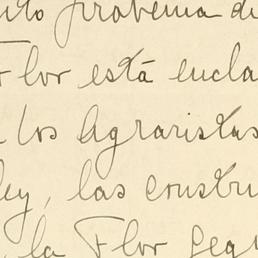 problema de
Flor está encla
los Agraristas
ley, las constru
la Flor